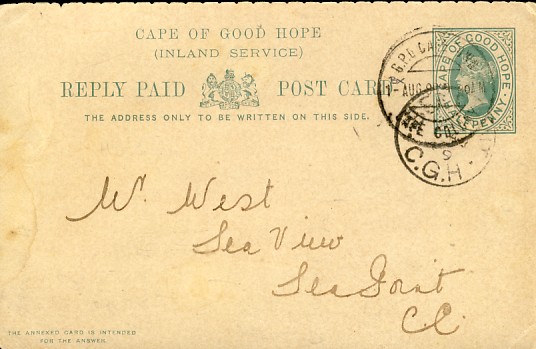 CAPE OF GOOD HOPE
(INLAND SERVICE)
REPLY PAID POST CARD
THE ADDRESS ONLY TO BE WRITTEN ON THIS SIDE.
CAPE OF GOOD HOPE.
PENNY.
G.P.O. CA
AUG
9
C.G.H.
Mr. West
Sea View
Sea Point
CC.
THE ANNEXED CARD IS INTENDED
FOR THE ANSWER.